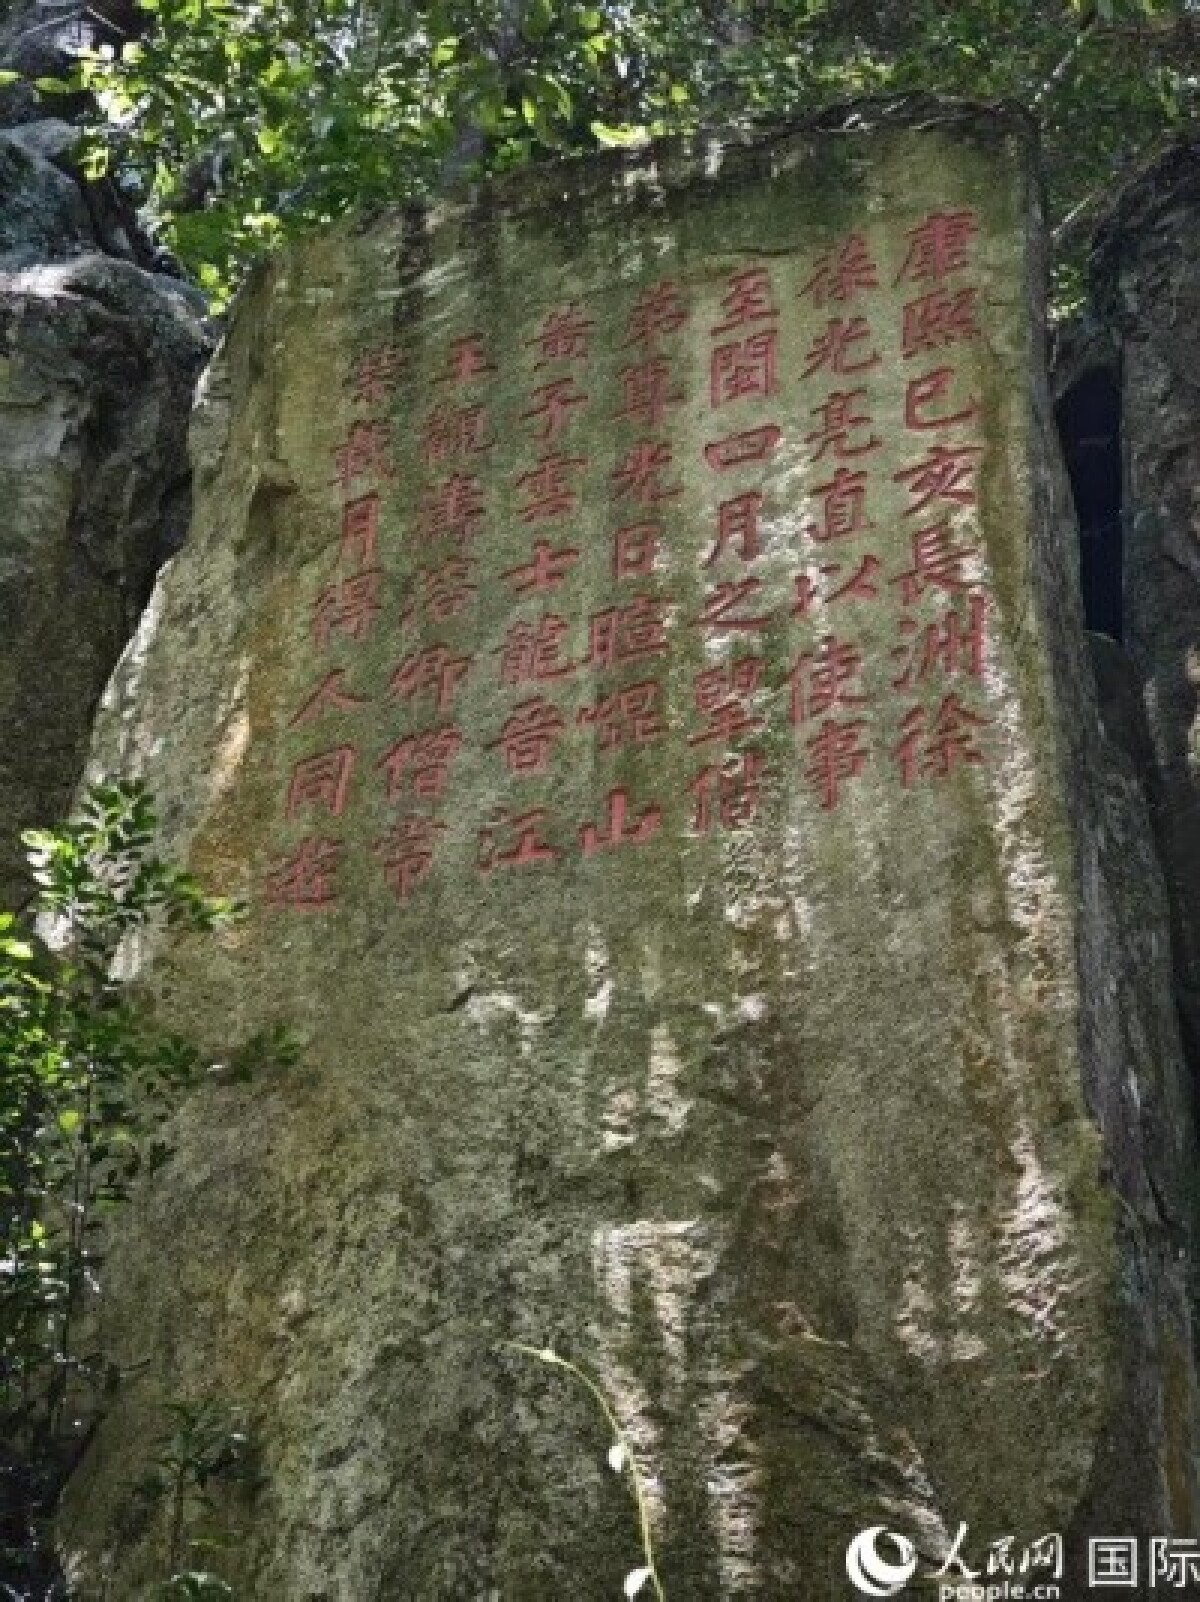 康熙己亥長洲徐
葆光亮直以使事
至閩四月之望偕
弟尊光日暄崐山
黃子雲士龍晉江
王觀濤濬卿僧常
榮載月得人同遊
人民网 国际
people.cn